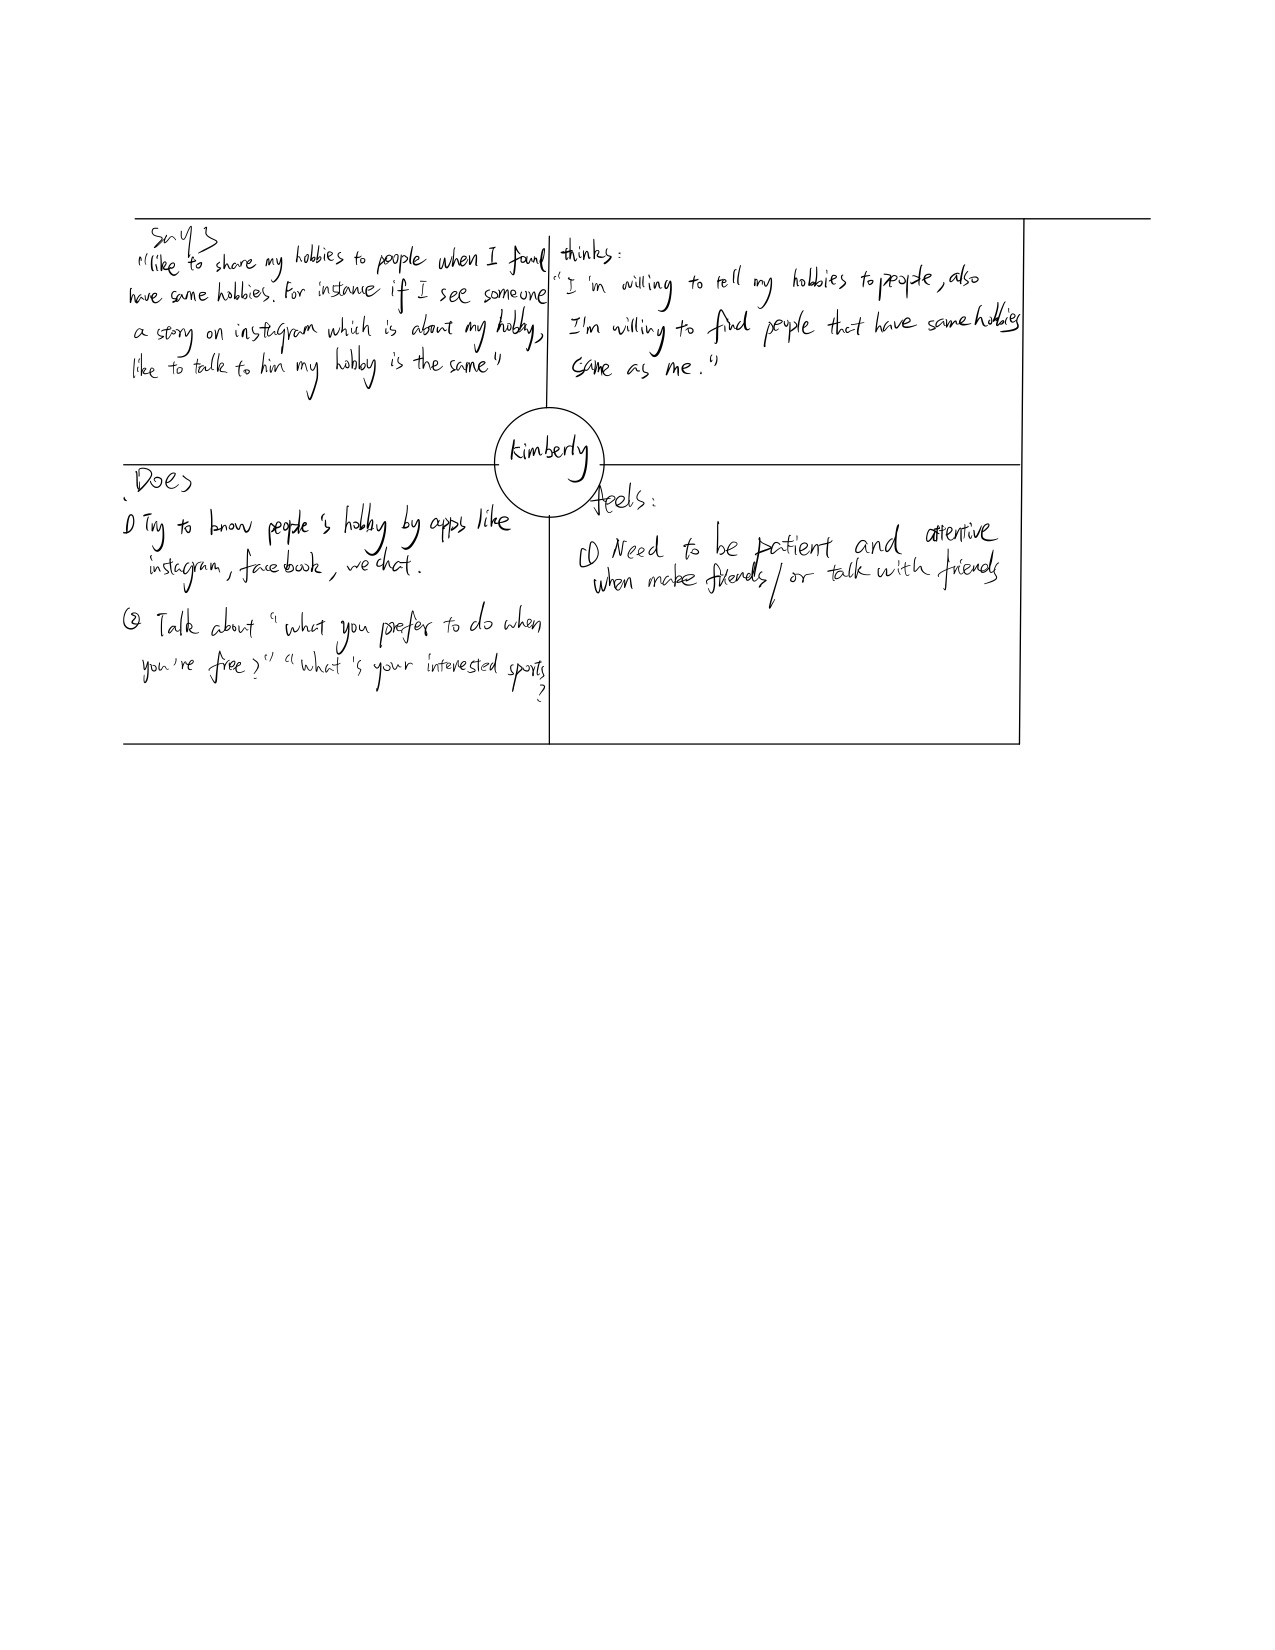 says
"like to share my hobbies to people when I found
have same hobbies. For instance if I see someone
a story on instagram which is about my hobby,
like to talk to him my hobby is the same"
thinks:
"I'm willing to tell my hobbies to people, also
I'm willing to find people that have same hobbies
same as me."
kimberly
Does
① Try to know people's hobby by apps like
instagram, facebook, wechat.
② Talk about "what you prefer to do when
you're free?" "what's your interested sports
?
feels:
① Need to be patient and attentive
when make friends/or talk with friends